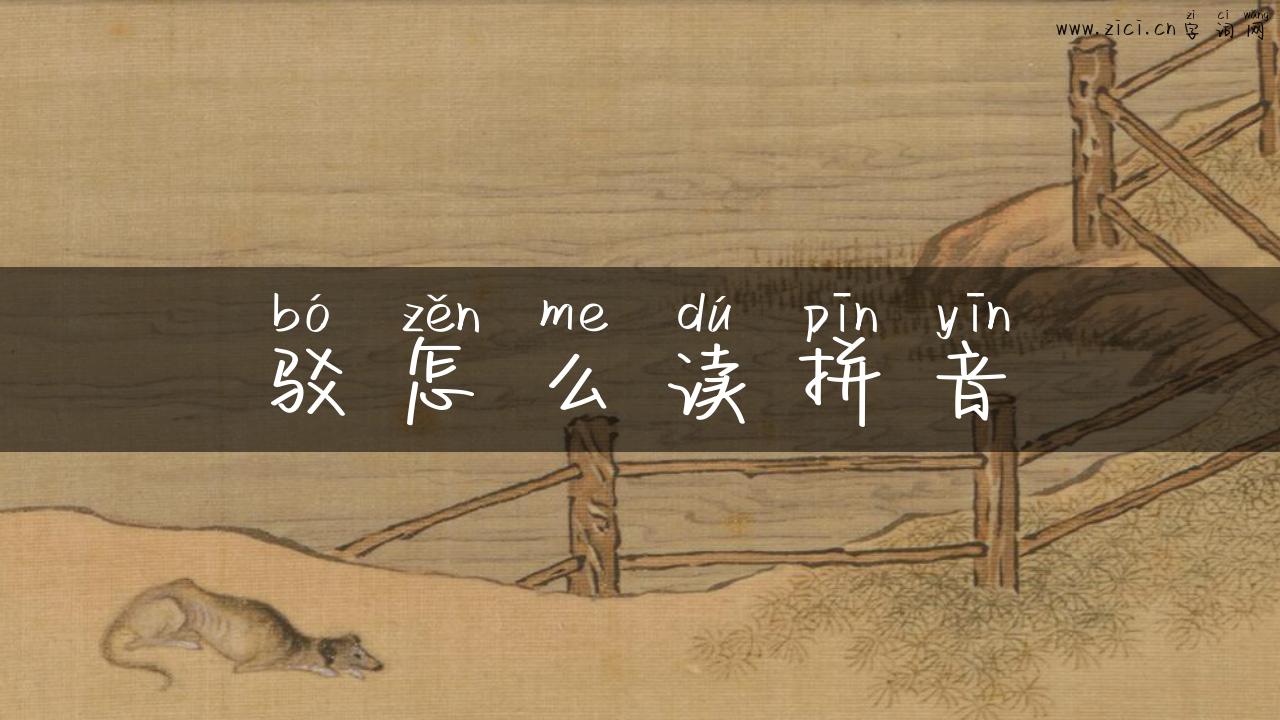 zì cí wǎng
www.zici.cn 字词网
bó zěn me dú pīn yīn
驳怎么读拼音